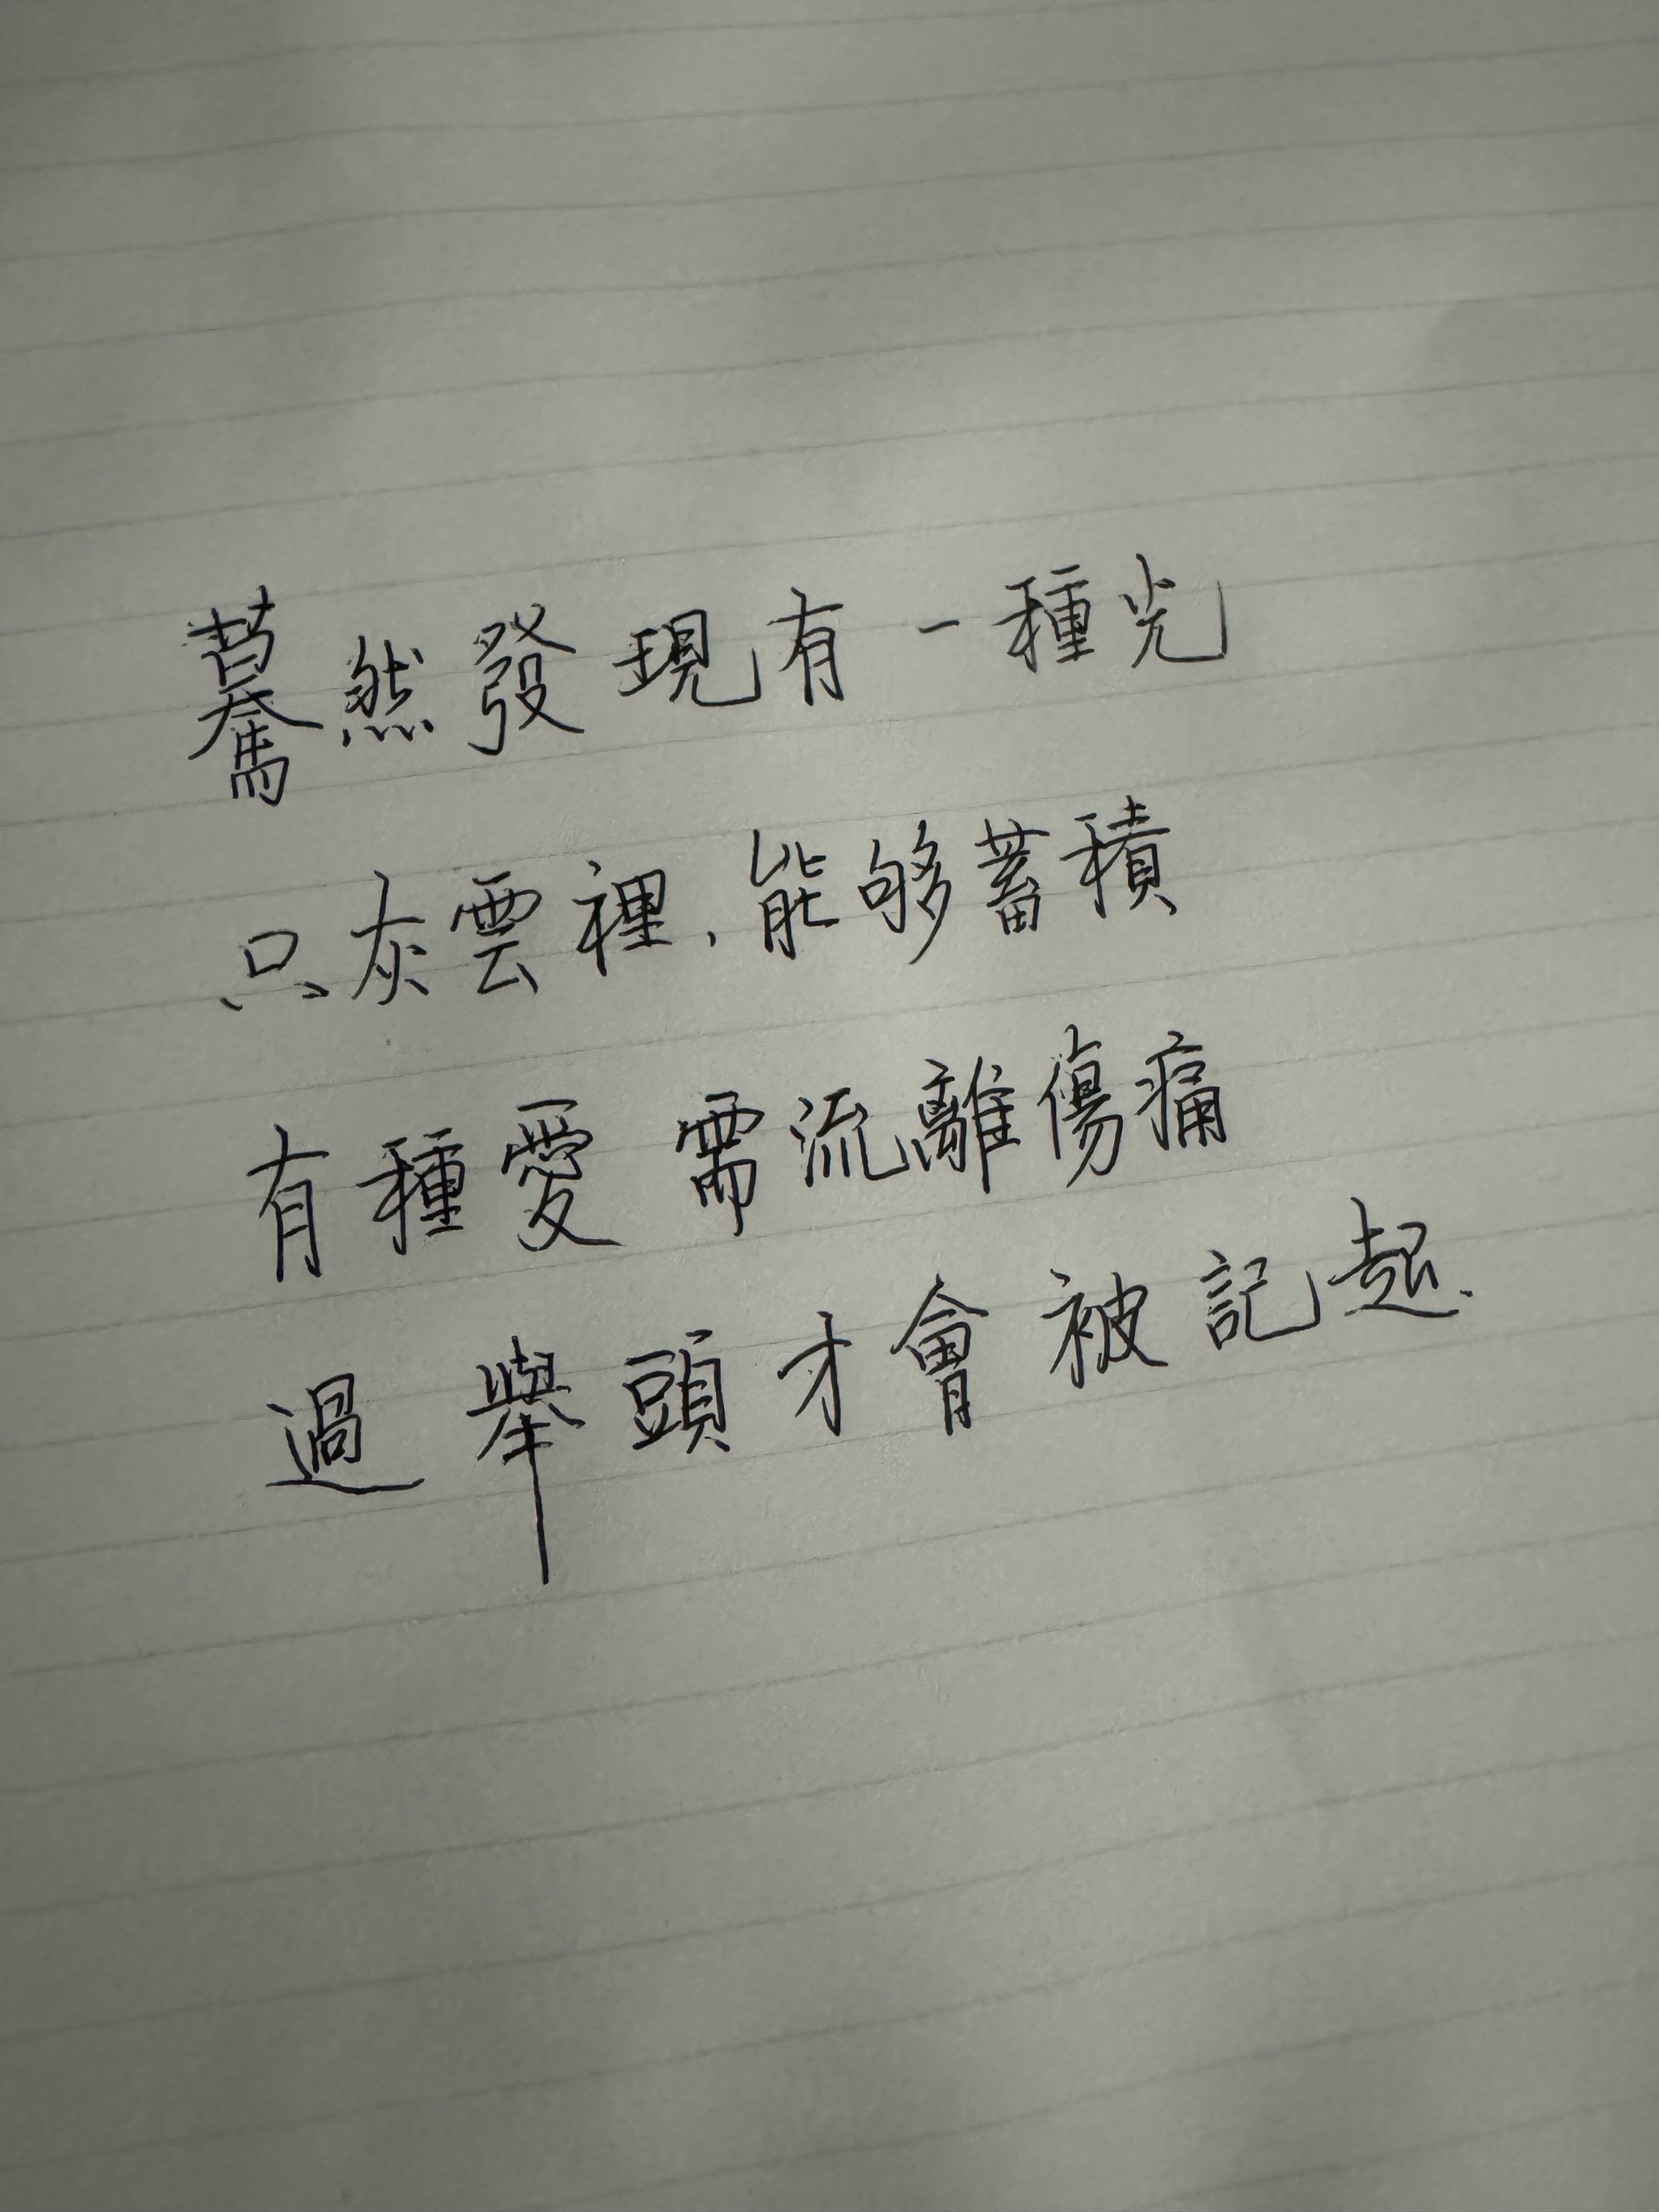 驀然發現有一種光
只灰雲裡、能够蓄積
有種愛 需流離傷痛
過 舉頭才會被記起.